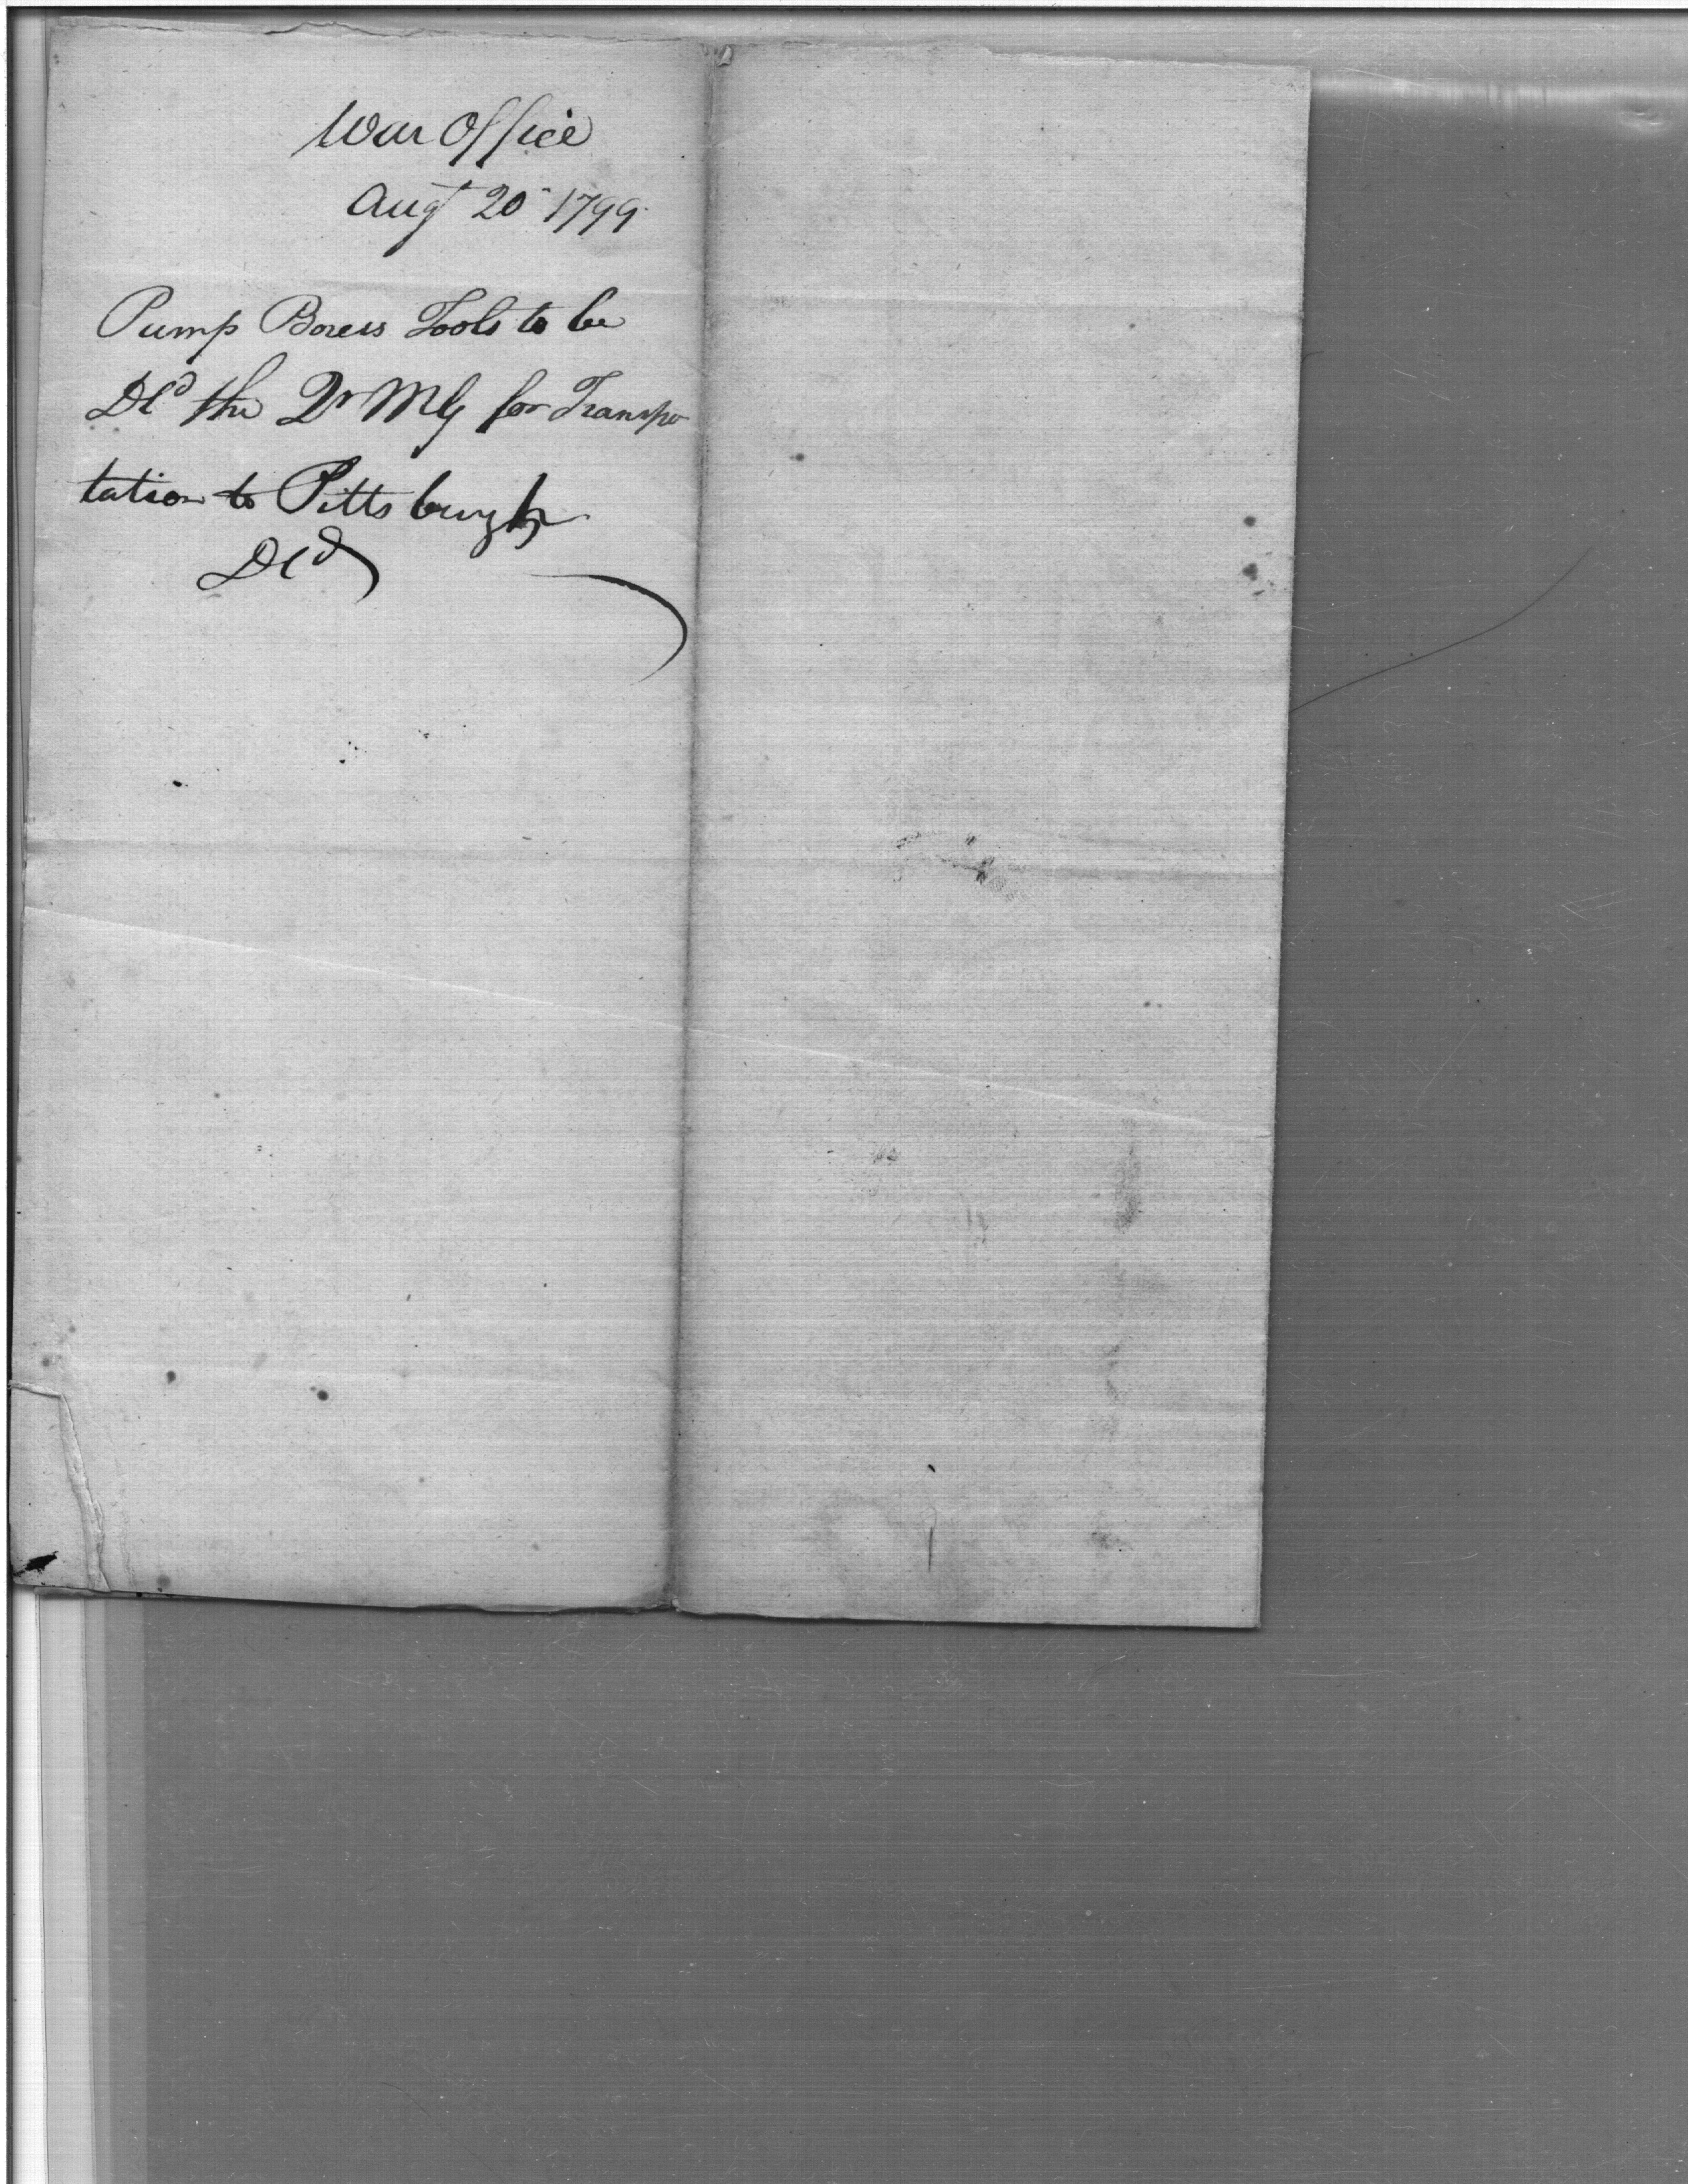 War Office
Augt 20 1799
Pump Borers Tools to be
Dld the Qr MG for Transpo
tation to Pittsburgh
Dld